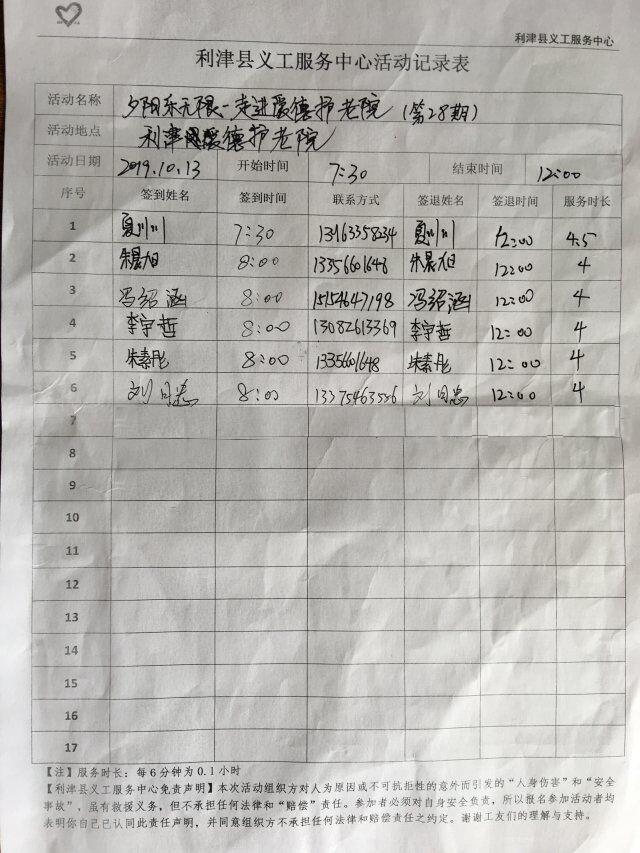 利津县义工服务中心
利津县义工服务中心活动记录表
活动名称 夕阳乐无限-走进爱德护老院(第28期)
活动地点 利津县爱德护老院
活动日期 2019.10.13 开始时间 7:30 结束时间 12:00
序号 签到姓名 签到时间 联系方式 签退姓名 签退时间 服务时长
1 夏川川 7:30 夏川川 12:00 4.5
2 朱昊旭 8:00 13356601648 朱昊旭 12:00 4
3 冯绍涵 8:00 15154647198 冯绍涵 12:00 4
4 李宇哲 8:00 13082613369 李宇哲 12:00 4
5 朱素彤 8:00 朱素彤 12:00 4
6 刘同忠 8:00 刘同忠 12:00 4
7
8
9
10
11
12
13
14
15
16
17
【注】服务时长:每6分钟为0.1小时
【利津县义工服务中心免责声明】本次活动组织方对人为原因或不可抗拒性的意外而引发的“人身伤害”和“安全
事故”,虽有救援义务,但不承担任何法律和“赔偿”责任。参加者必须对自身安全负责,所以报名参加活动者均
表明你自己已认同此责任声明,并同意组织方不承担任何法律和赔偿责任之约定。谢谢工友们的理解与支持。